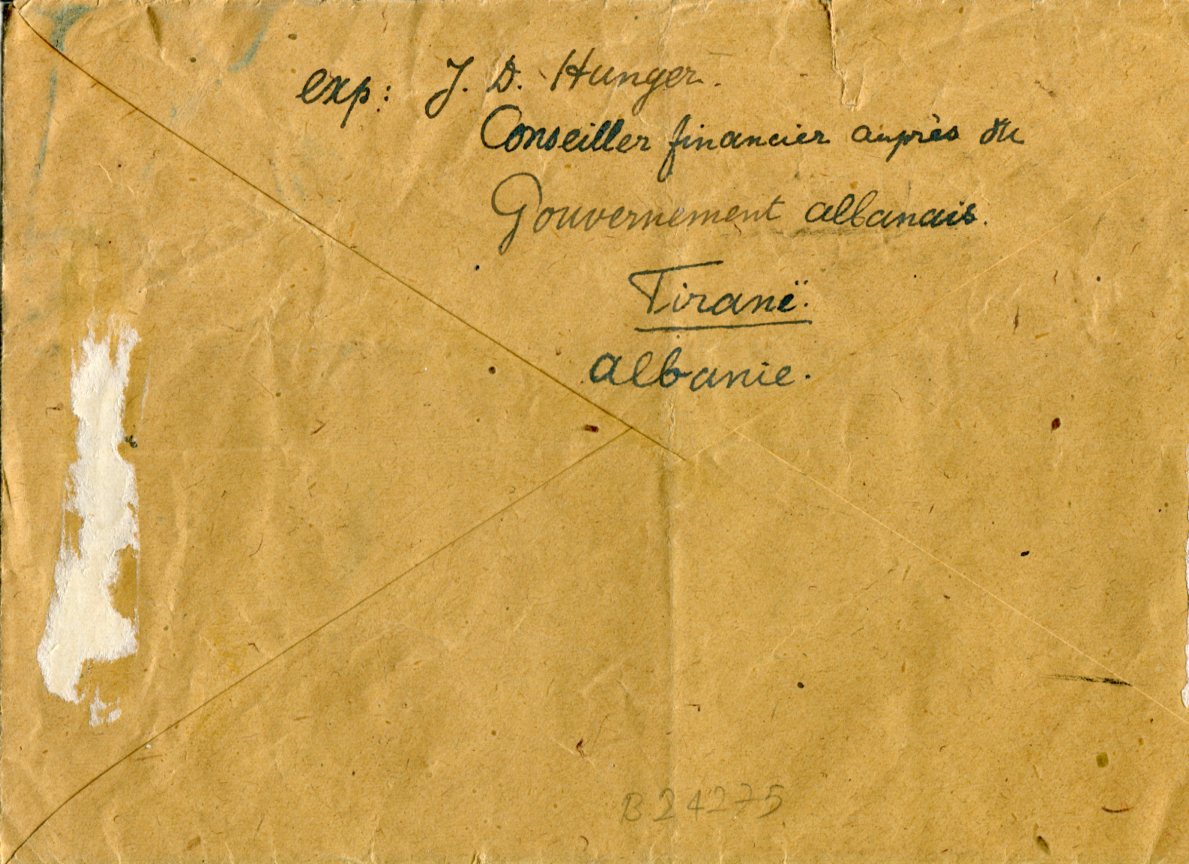 exp: J. D. Hunger.
Conseiller financier auprès du
Gouvernement albanais.
Tiranë.
albanie.
B24275